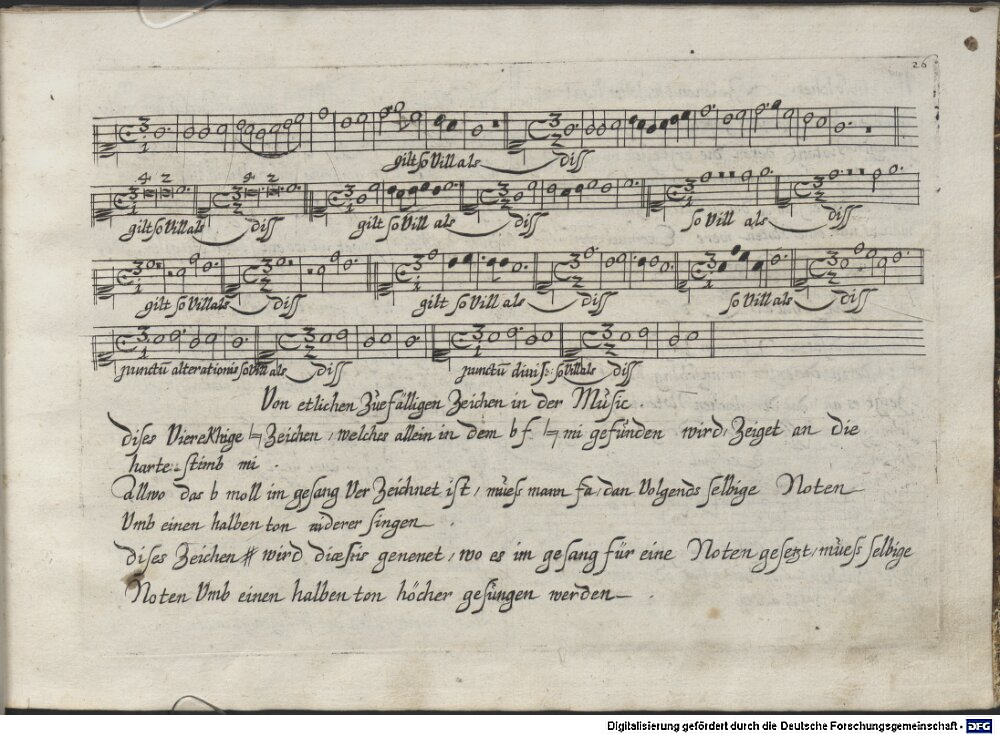 26
3 1 3 2
gilt so Vill als diss
4 2 4 2
3 2 3 1 3 2 3 1 3 2
gilt so Vill als diss gilt so Vill als diss so Vill als diss
3 1 3 2 3 1 3 2 3 1 3 2
gilt so Vill als diss gilt so Vill als diss so Vill als diss
3 1 3 2 3 1 3 2
punctū alterationis so Vill als diss punctū so Vill als diss
Von etlichen Zuefälligen Zeichen in der Music
dises Vierekhige ♮ Zeichen, welches allein in dem b f. ♮ mi gefunden wird, Zeiget an die
harte stimb mi
allwo das b moll im gesang Ver Zeichnet ist, muess mann fa, dan Volgends selbige Noten
Vmb einen halben ton niderer singen.
dises Zeichen # wird diæsis genenet, wo es im gesang für eine Noten gesezt, muess selbige
Noten Vmb einen halben ton höcher gesungen werden.
Digitalisierung gefördert durch die Deutsche Forschungsgemeinschaft - DFG